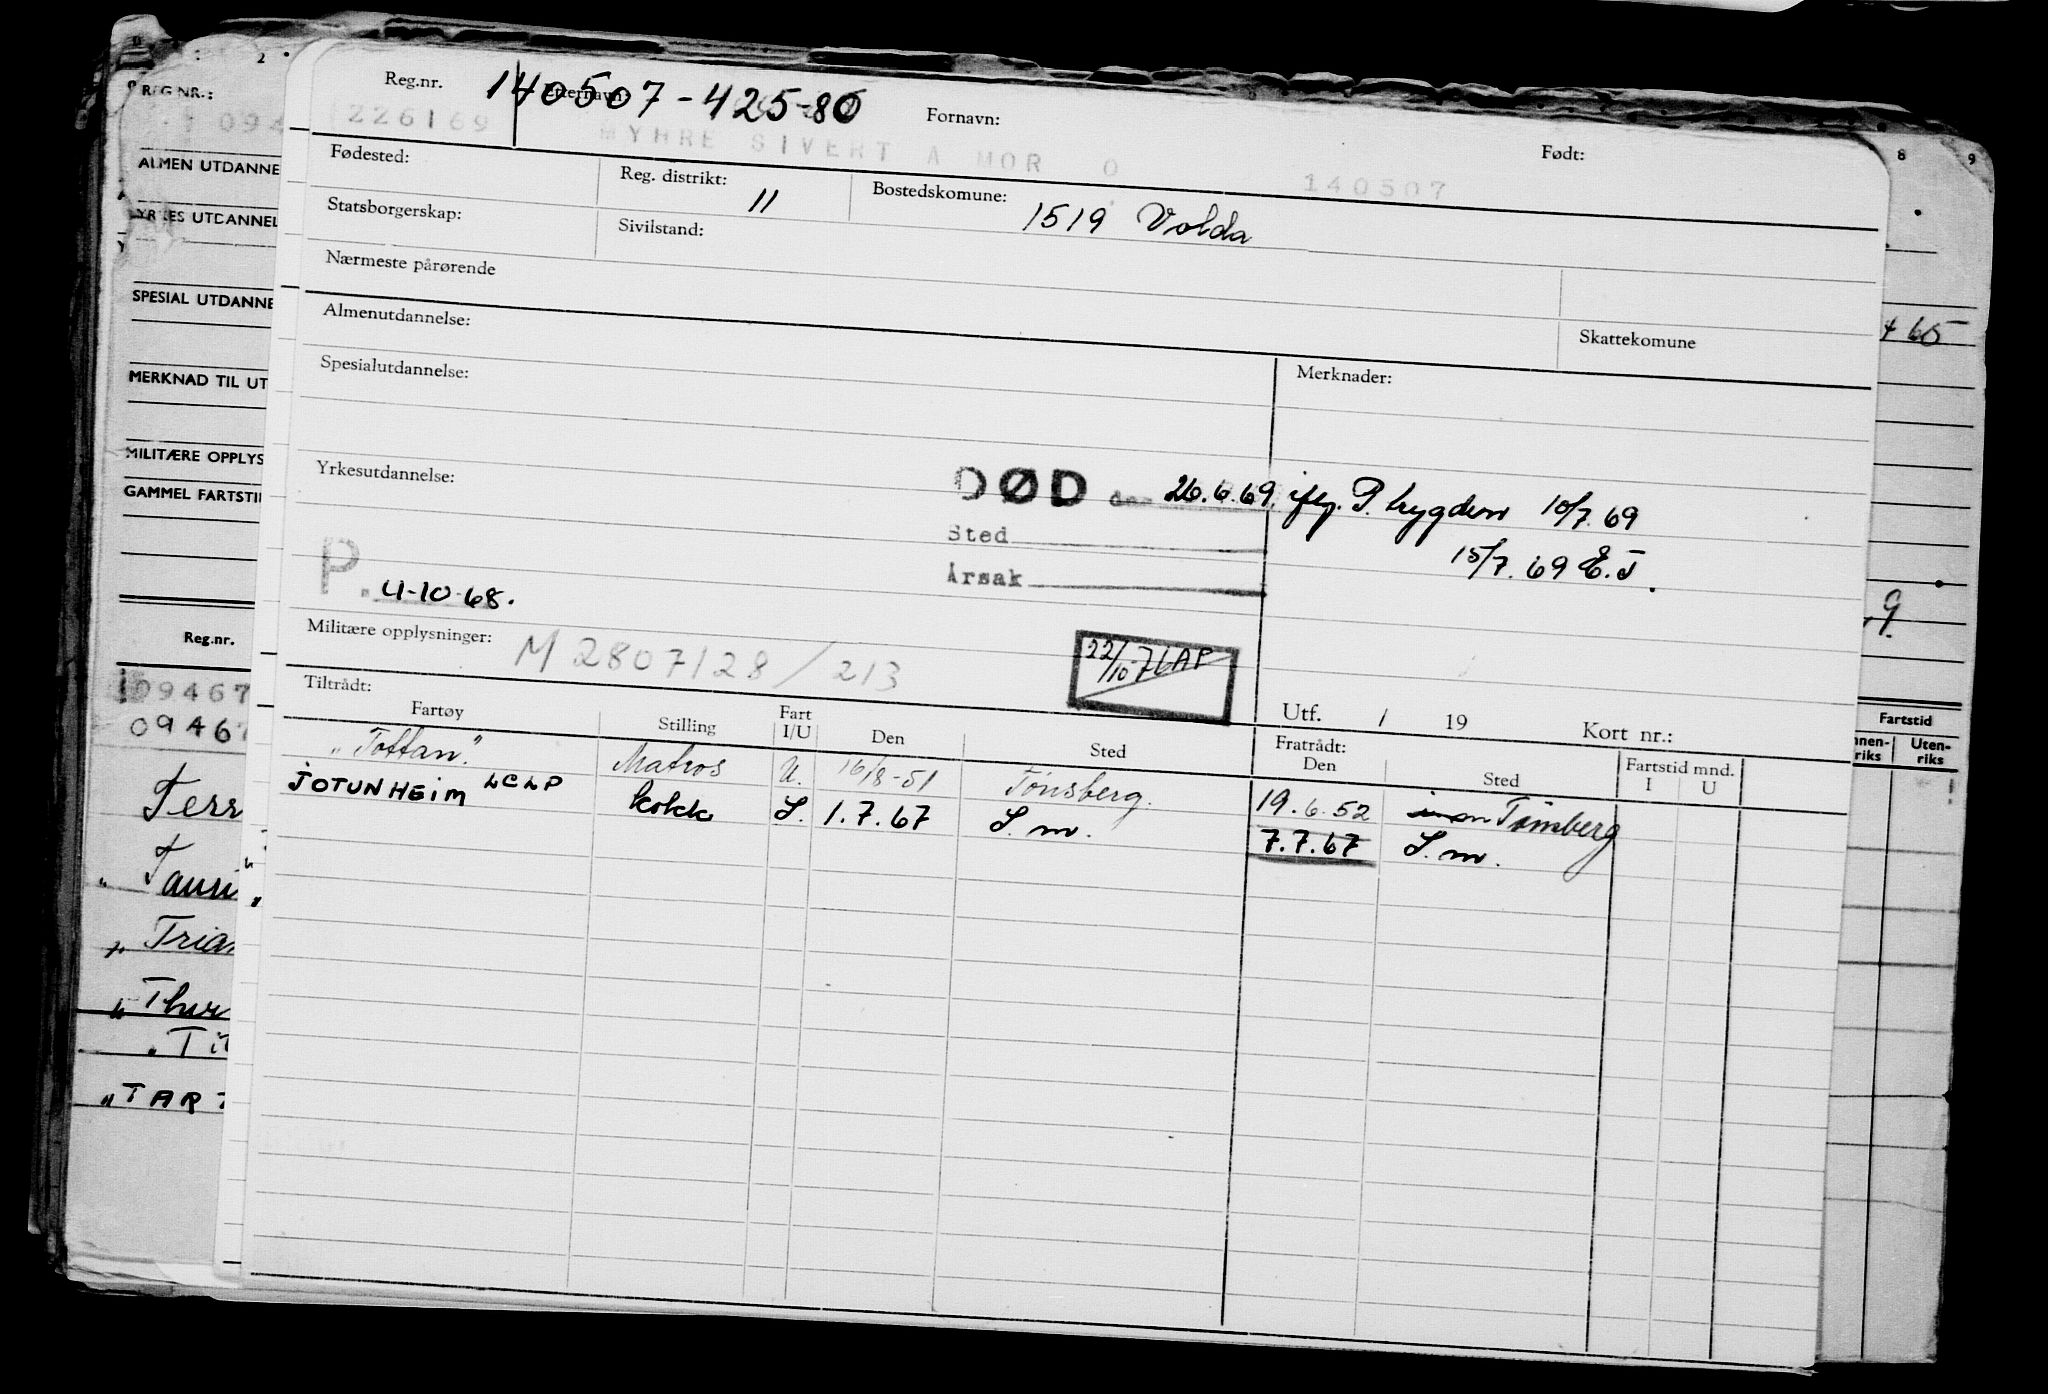 Reg.nr. 140507-425-80
Etternavn: Fornavn: Født:
226169 MYHRE SIVERT A MOR O 140507
Fødested: Reg. distrikt: 11 Bostedskomune: 1519 Volda
Statsborgerskap: Sivilstand:
Nærmeste pårørende
Almenutdannelse: Skattekomune
Spesialutdannelse: Merknader:
Yrkesutdannelse:
DØD den 26.6.69. iflg. P. trygden 10/7.69
Sted 15/7.69 E.J.
Årsak
P. 4-10-68.
Militære opplysninger: M 2807128/213
22/10-71 AP
Tiltrådt: Utf. / 19 Kort nr.:
Fartøy Stilling Fart I/U Den Sted Fratrådt: Den Sted Fartstid mnd. I U
"Tottan". Matros U. 16/8-51 Tønsberg. 19.6.52 Tønsberg
JOTUNHEIM LCLP kokk S. 1.7.67 S.m. 7.7.67 S.m.
2 8 9
REG NR.:
094
ALMEN UTDANNE
YRKES UTDANNEL
SPESIAL UTDANNE
65
MERKNAD TIL UT
MILITÆRE OPPLYS
GAMMEL FARTSTI
9.
Reg.nr.
Fartstid
nnen-riks Uten-riks
09467
09467
Terr
Tauri
Trian
Thur
Tit
"TART